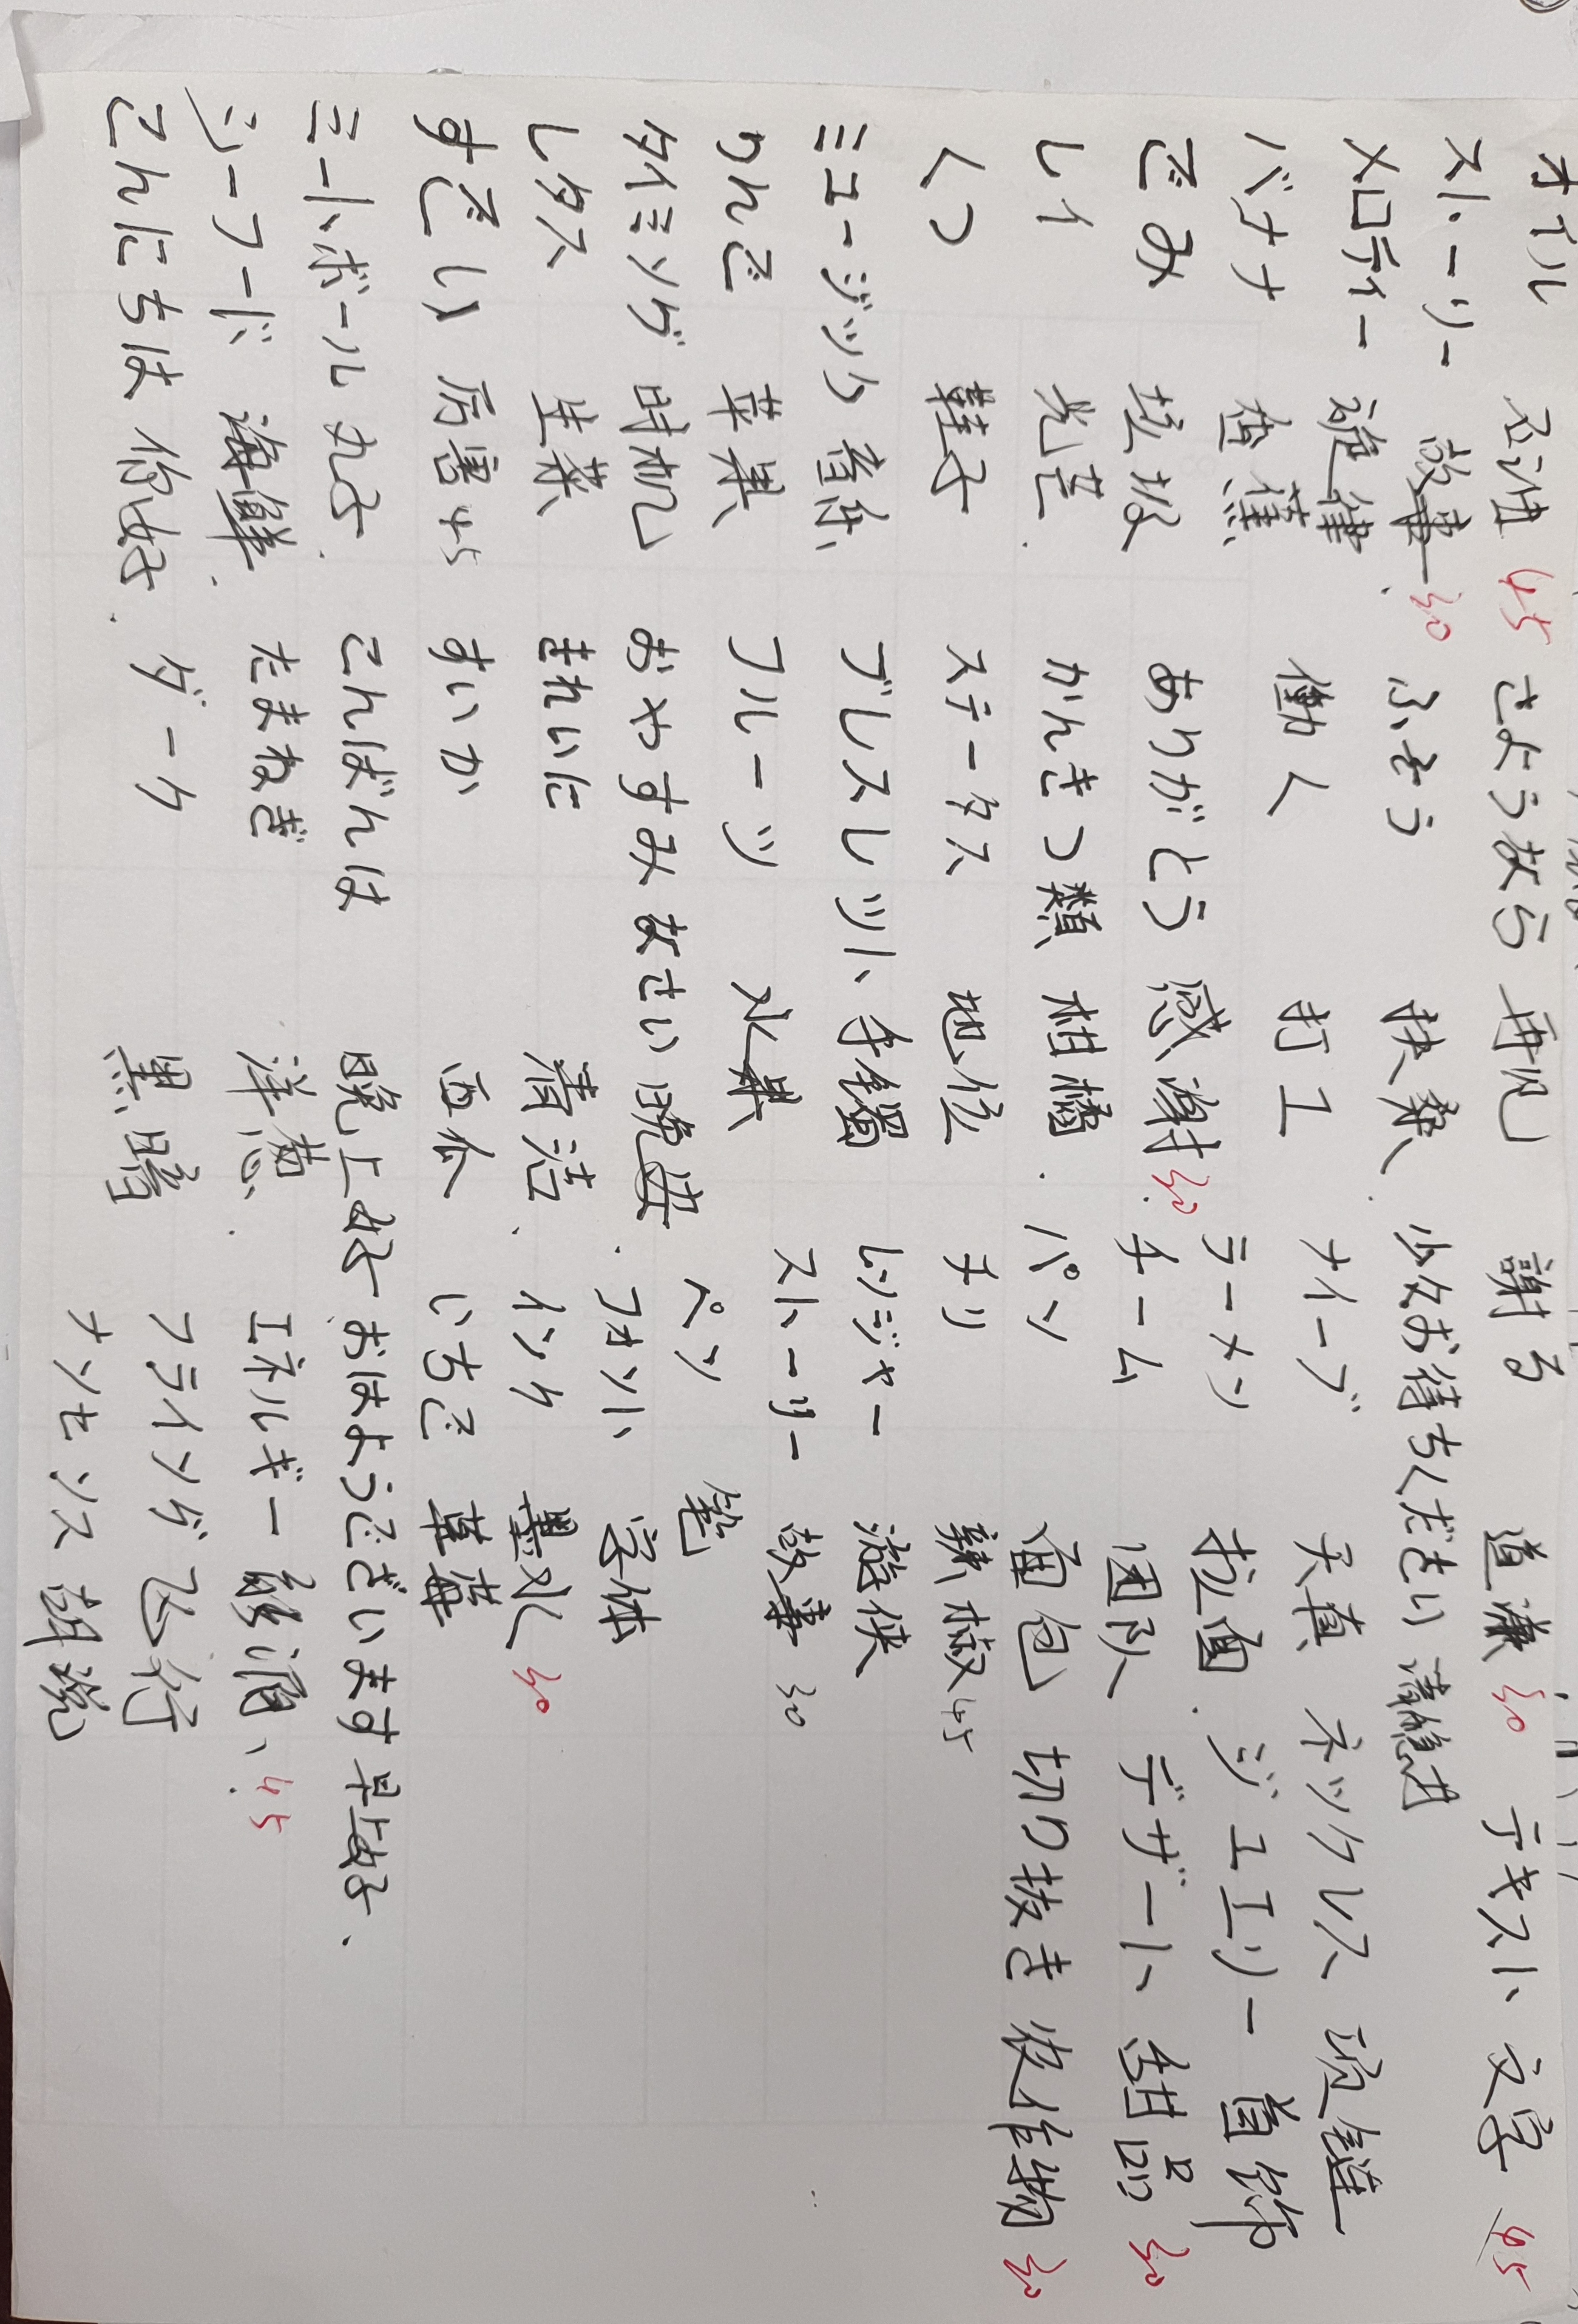 オイル 45 さようなら 再见 謝る 道謙 30 テキスト 文字 45
ストーリー 故事 30
メロディー 旋律 ふそう 扶桑 少々お待ちください 请稍等
バナナ 香蕉 働く 打工 ナイーブ 天真 ネックレス 项链
ごみ 垃圾 ありがとう 感謝 30 ラーメン 拉面 ジュエリー 首饰
レイ 光芒 かんきつ類 柑橘 チーム 团队 デザート 甜品 30
くつ 鞋子 ステータス 地位 パン 面包 切り抜き 作物 30
チリ 辣椒 45
ミュージック 音乐 ブレスレット 手镯 レンジャー 游侠
りんご 苹果 フルーツ 水果 ストーリー 故事 30
ペン 笔
タイミング 时机 おやすみなさい 晚安 フォント 字体
レタス 生菜 きれいに 清洁 インク 墨水 30
すごい 厉害 45 すいか 西瓜 いちご 草莓
ミートボール 丸子 こんばんは 晚上好 おはようございます 早上好
シーフード 海鲜 たまねぎ 洋葱 エネルギー 能源 45
こんにちは 你好 ダーク 黑暗 フライング 飞行
ナンセンス 胡说